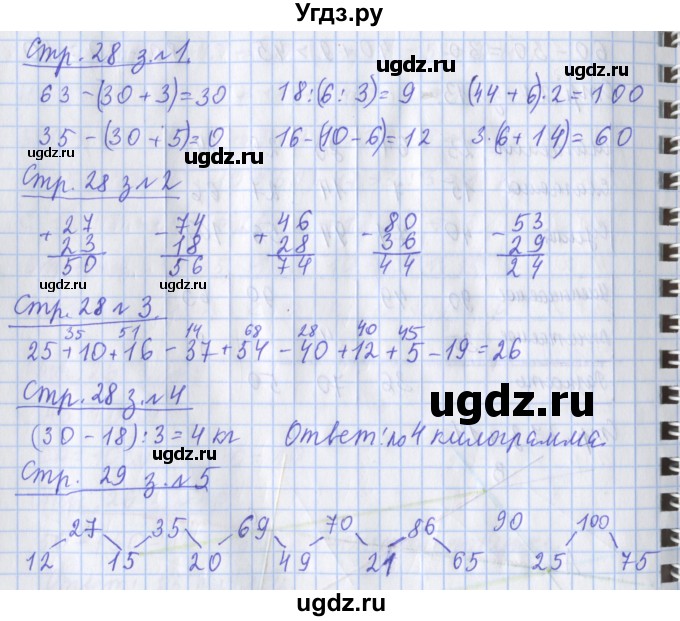 Угдз.ру
Стр. 28 з.№1.
63-(30+3)=30 18:(6:3)=9 (44+6)·2=100
35-(30+5)=0 16-(10-6)=12 3·(6+14)=60
Стр. 28 з№2
+27 -74 +46 -80 -53
23 18 28 36 29
50 56 74 44 24
Стр. 28 №3.
35 51 14 68 28 40 45
25+10+16-37+54-40+12+5-19=26
Стр. 28 з.№4
(30-18):3=4 кг Ответ: по 4 килограмма.
Стр. 29 з.№5
27 35 69 70 86 90 100
12 15 20 49 21 65 25 75
ugdz.ru
ugdz.ru
ugdz.ru
ugdz.ru
ugdz.ru
ugdz.ru
ugdz.ru
ugdz.ru
ugdz.ru
ugdz.ru
ugdz.ru